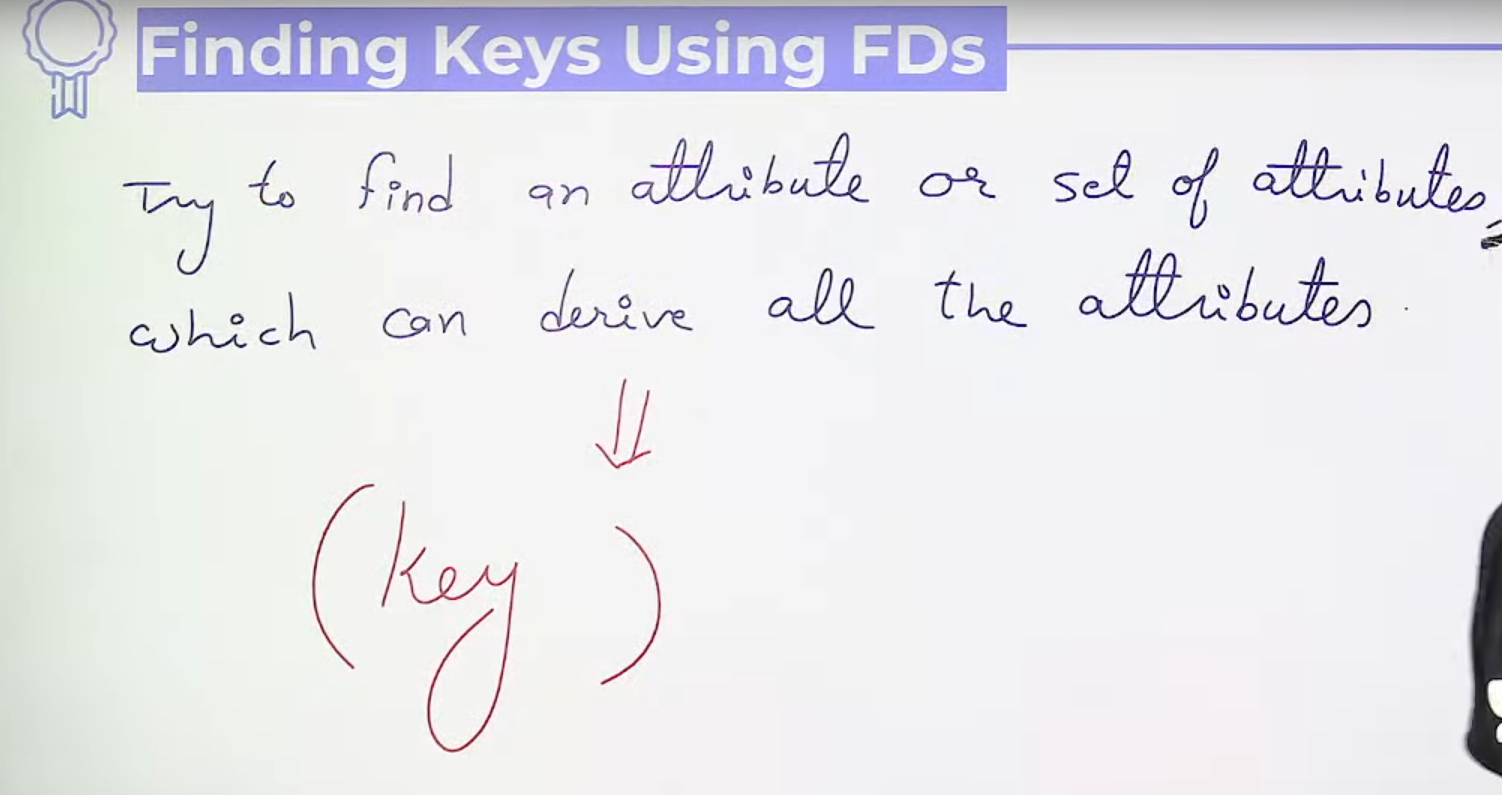 Finding Keys Using FDs
Try to find an attribute or set of attributes,
which can derive all the attributes.
(key)